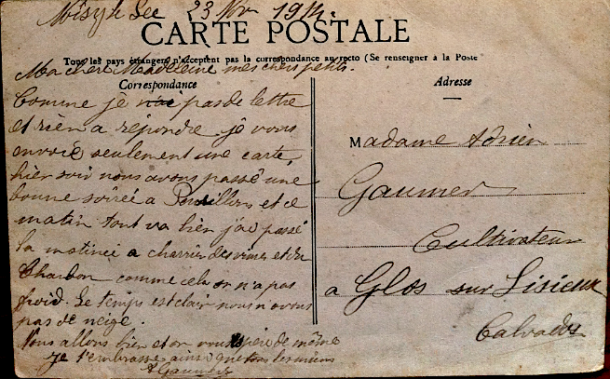 23 Nov 1914
CARTE POSTALE
Tous les pays étrangers n'acceptent pas la correspondance au recto (Se renseigner à la Poste
Ma chere Madeleine mes chers petits.
Correspondance
Adresse
Comme je n'ai pas de lettre
et rien a répondre. je vous
envoie seulement une carte,
hier soir nous avons passé une
bonne soirée a et ce
matin tout va bien j'ai passé
la matinée a charrier des vines et du
Charbon comme cela on n'a pas
froid. Le temps est clair nous n'avons
pas de neige.
Nous allons bien et on vous espère de même
Je t'embrasse ainsi que tous les miens
A Gaumer
Madame Adrien
Gaumer
Cultivateur
a Glos sur Lisieux
Calvados